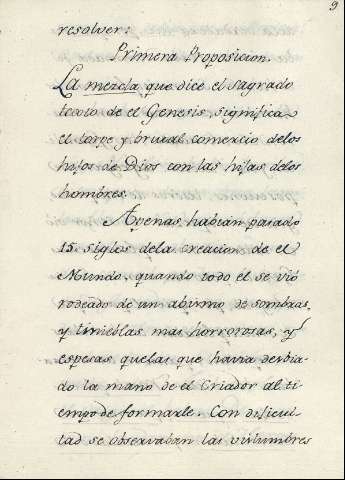 9
resolver:
Primera Proposicion.
La mezcla que dice el sagrado
texto de el Genesis, significa
el torpe y brutal comercio delos
hijos de Dios con las hijas delos
hombres.
Apenas habian pasado
15 siglos dela creacion de el
Mundo, quando todo el se vió
rodeado de un abismo de sombras,
y tinieblas mas horrorosas, y
espesas, quelas que havia
do la mano de el Criador al ti-
empo de formarle. Con dificul-
tad se observaban las vislumbres